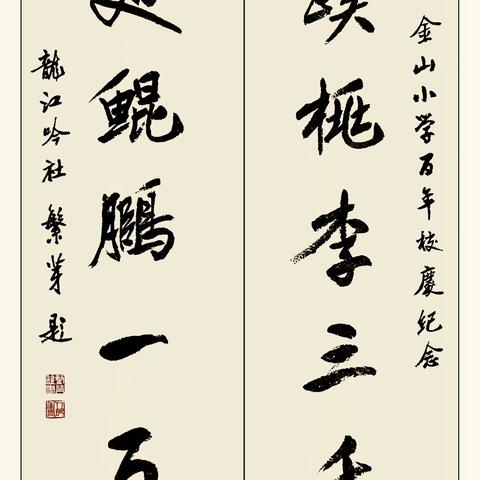 金山小学百年校慶紀念
桃李三千
鲲鵬一百
龍江吟社 繁芽 题